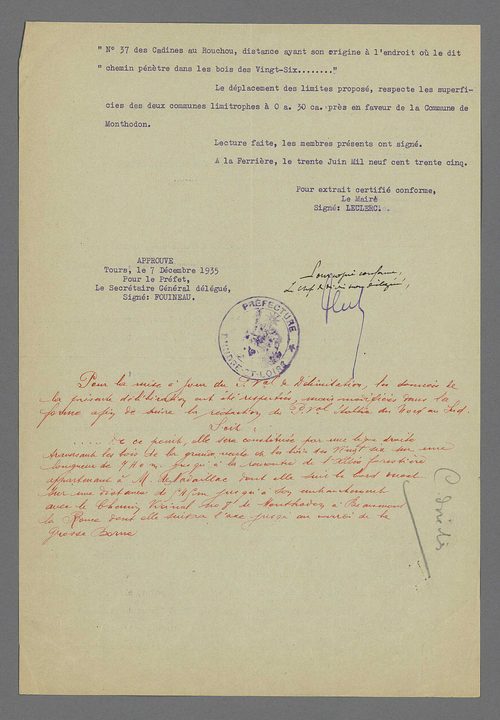 " N° 37 des Cadines au Rouchou, distance ayant son origine à l'endroit où le dit
" chemin pénètre dans les bois des Vingt-Six........"
Le déplacement des limites proposé, respecte les superfi-
cies des deux communes limitrophes à 0 a. 30 ca. près en faveur de la Commune de
Monthodon.
Lecture faite, les membres présents ont signé.
A la Ferrière, le trente Juin Mil neuf cent trente cinq.
Pour extrait certifié conforme,
Le Maire
Signé: LECLERC.
APPROUVE
Tours, le 7 Décembre 1935
Pour le Préfet,
Le Secrétaire Général délégué,
Signé: FOUINEAU.
Pour copie conforme,
Le Chef de division délégué,
PREFECTURE
D'INDRE-ET-LOIRE
Pour la mise à jour du P.Val de Délimitation, les données de
la présente délibération ont été respectées, mais modifiées dans la
forme afin de suivre la rédaction du P.Val établie du Nord au Sud.
Soit :
..... De ce point, elle sera constituée par une ligne droite
traversant les bois de la grande vente et les bois des Vingt six sur une
longueur de jusqu'à la rencontre de l'allée forestière
appartenant à M. de dont elle suit le bord ouest
sur une distance de jusqu'à son embranchement
avec le Chemin Vicinal de Monthodon à Beaumont
la Ronce dont elle suivra l'axe jusqu'au
Grosse Borne